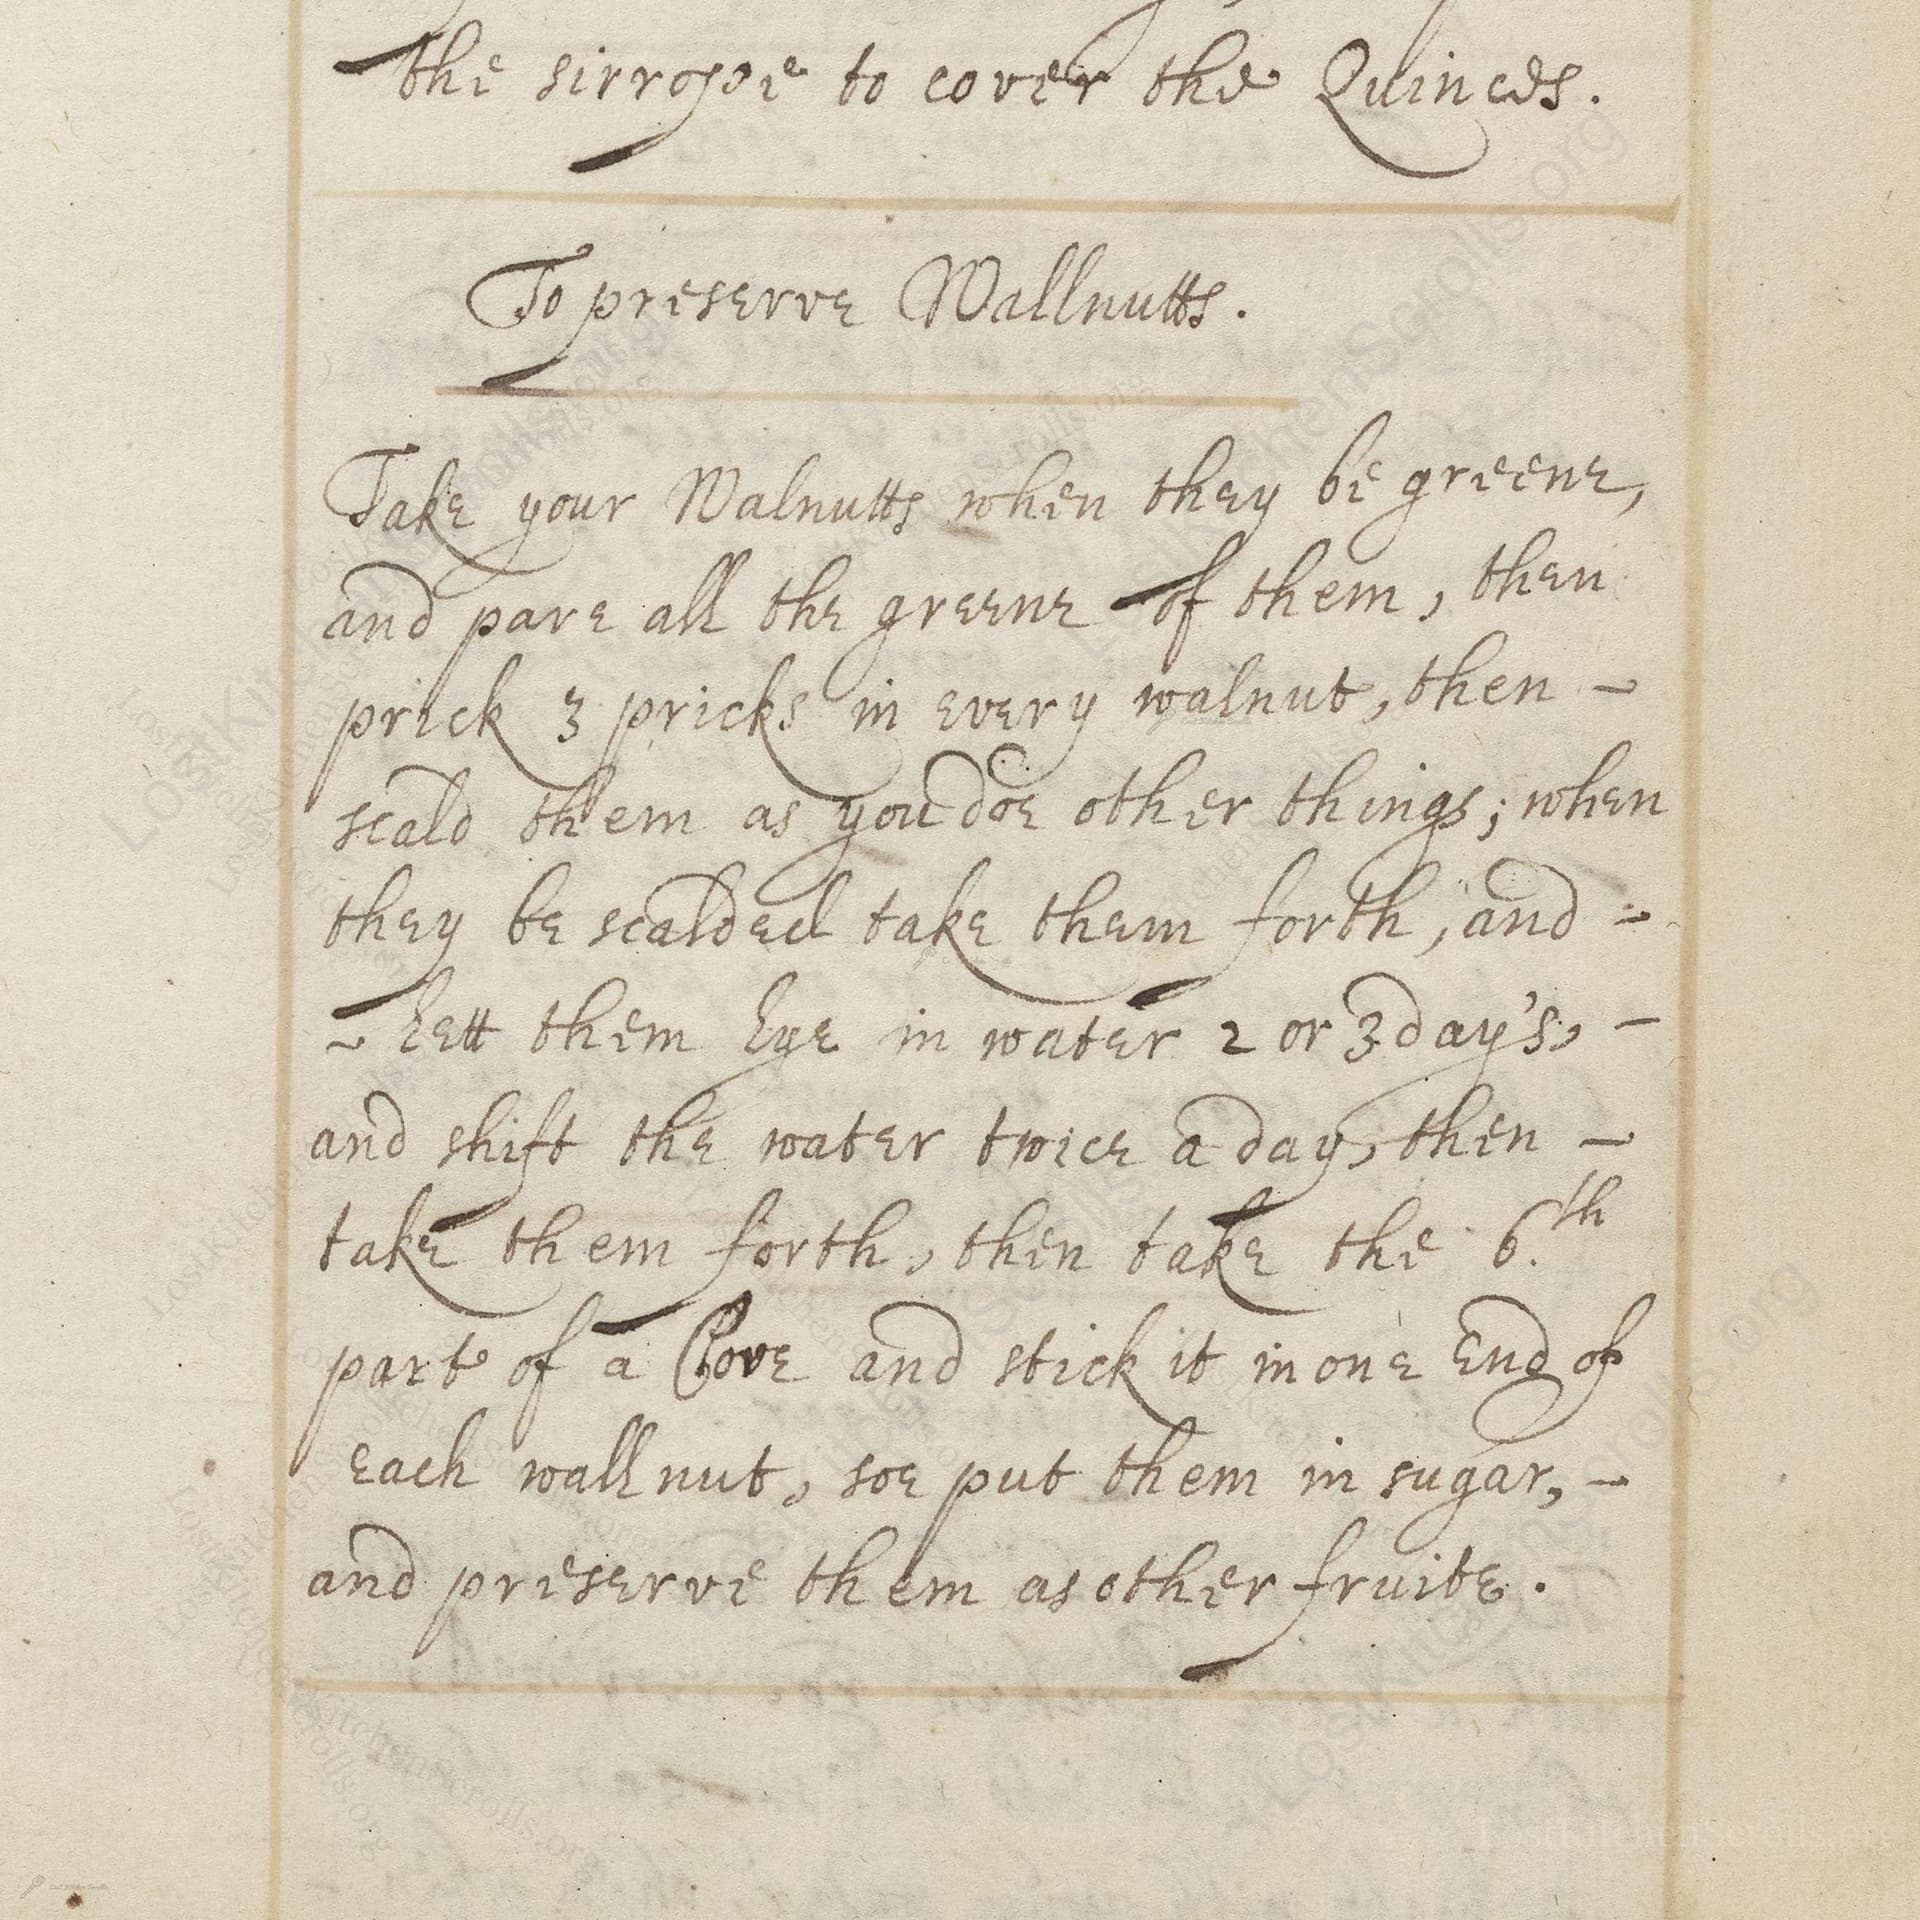 the sirrope to cover the Quinces.
To preserve Wallnutts.
Take your Walnutts when they be greene,
and pare all the greene of them, then
prick 3 pricks in every walnut, then -
scald them as you doe other things; when
they be scalded take them forth, and -
- lett them lye in water 2 or 3 day's, -
and shift the water twice a day, then -
take them forth, then take the 6.th
part of a Clove and stick it in one End of
each wallnut, soe put them in sugar, -
and preserve them as other fruite.
LostKitchenScrolls.org